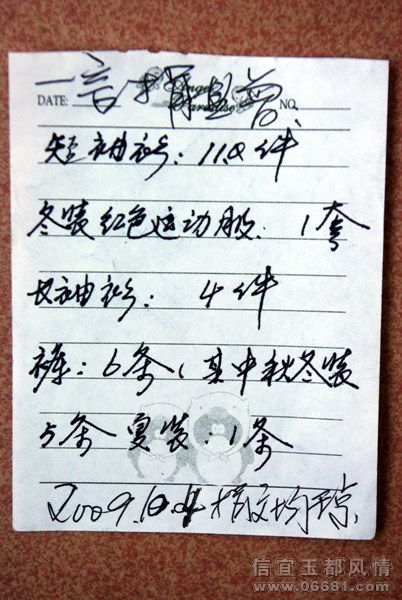 DATE: Angel Paradise NO.
短袖衫: 118件
冬装红色运动服: 1套
长袖衫: 4件
裤: 6条(其中秋冬装
5条 夏装: 1条
2009.10.4
信宜玉都风情
www.06681.com